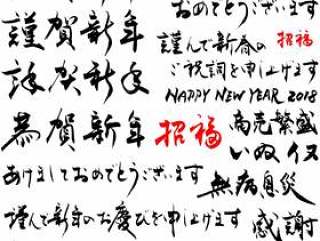 おめでとうございます
謹賀新年
謹んで新春の
招福
ご祝詞を申し上げます
謹賀新年
HAPPY NEW YEAR 2018
恭賀新年
招福
商売繁盛
いぬ イヌ
あけましておめでとうございます
無病息災
謹んで新年のお慶びを申し上げます
感謝